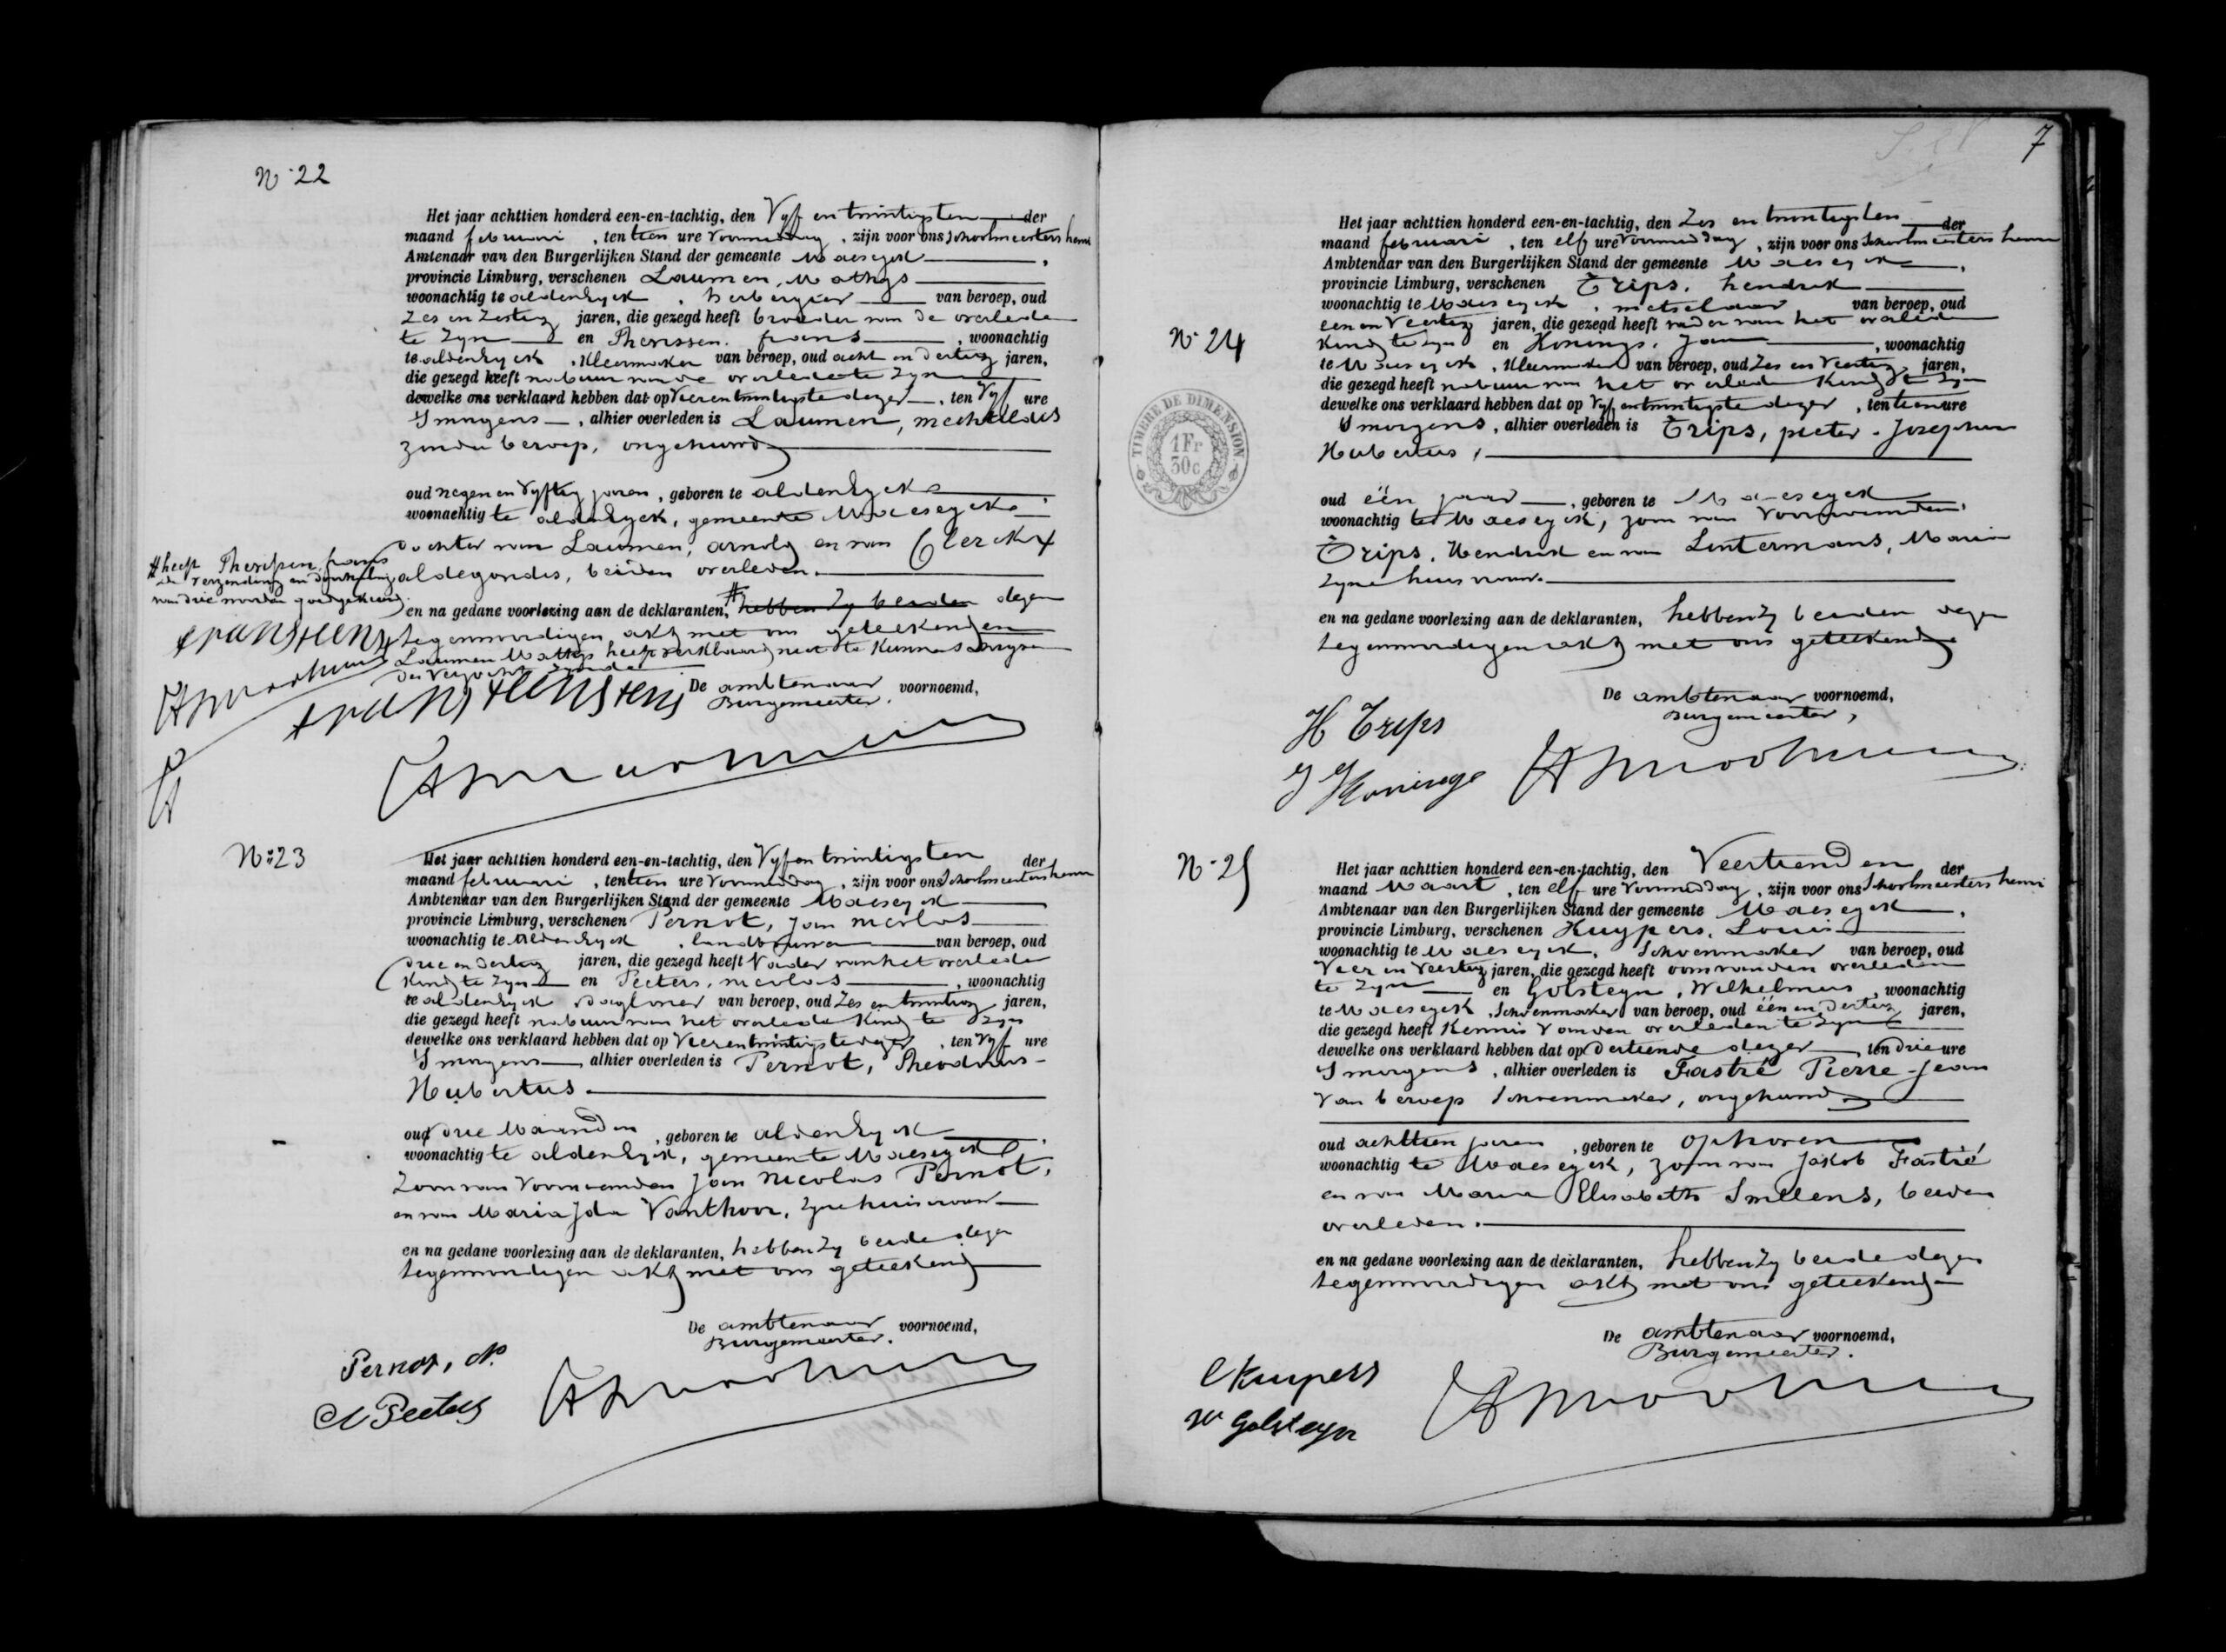 N° 22
Het jaar achttien honderd een-en-tachtig, den Vyf en twintigsten der
maand februari, ten tien ure voormiddag, zijn voor ons Schoolmeesters henri
Amtenaar van den Burgerlijken Stand der gemeente Maeseyck,
provincie Limburg, verschenen Laumen, Mathys
woonachtig te aldeneyck, herbergier van beroep, oud
Zes en Zestig jaren, die gezegd heeft broeder van de overlede
te Zyn en Therissen, frans, woonachtig
te aldeneyck, Kleermaker van beroep, oud acht en dertig jaren,
die gezegd heeft nabuur van de overledete Zyn
dewelke ons verklaard hebben dat op Vierentwintigste dezer, ten Vyf ure
Smorgens, alhier overleden is Laumen, mechtildis
zonder beroep, ongehuwd
oud negen en Vyftig jaren, geboren te aldeneyck
woonachtig te aldeneyck, gemeente Maeseyck
dochter van Laumen, arnold en van Clerckx
aldegondis, beiden overleden.
# heeft Therissen, frans
de verzending en doorhaling
van drie woorden goedgekeurd.
en na gedane voorlezing aan de deklaranten, # hebben zy beiden dezen
tegenwoordigen akt met ons geteekend en
Laumen Mathys heeft verklaard niet te Kunnen schryven
des verzocht zynde
De ambtenaar voornoemd,
Burgemeester.
N° 23
Het jaar achttien honderd een-en-tachtig, den Vyf en twintigsten der
maand februari, ten tien ure voormiddag, zijn voor ons Schoolmeesters henri
Ambtenaar van den Burgerlijken Stand der gemeente Maeseyck
provincie Limburg, verschenen Pernot, Jan nicolas
woonachtig te aldeneyck, landbouwer van beroep, oud
drie en dertig jaren, die gezegd heeft Vader van het overleden
Kind te Zyn en Peeters, nicolas, woonachtig
te aldeneyck dagloner van beroep, oud Zes en twintig jaren,
die gezegd heeft nabuur van het overlede Kind te Zyn
dewelke ons verklaard hebben dat op Vierentwintigste dezer, ten Vyf ure
Smorgens alhier overleden is Pernot, Theodorus-
Hubertus
oud drie Maanden, geboren te aldeneyck
woonachtig te aldeneyck, gemeente Maeseyck
Zoon van Voornoemden Jan Nicolas Pernot,
en van Maria Ida Vanthoor, Zyne huisvrouw
en na gedane voorlezing aan de deklaranten, hebben zy beide dezen
tegenwoordigen akt met ons geteekend
De ambtenaar voornoemd,
Burgemeester.
Pernot, N.
N Peeters
7
N° 24
Het jaar achttien honderd een-en-tachtig, den Zes en twintigsten der
maand februari, ten elf ure Voormiddag, zijn voor ons Schoolmeesters henri
Ambtenaar van den Burgerlijken Stand der gemeente Maeseyck,
provincie Limburg, verschenen Trips, hendrik
woonachtig te Maeseyck, metselaar van beroep, oud
een en Veertig jaren, die gezegd heeft vader van het overleden
Kind te zyn en Konings, Jan, woonachtig
te Maeseyck, Kleermaker van beroep, oud Zes en Veertig jaren,
die gezegd heeft nabuur van het overleden Kind te Zyn
dewelke ons verklaard hebben dat op Vyf entwintigste dezer, ten tien ure
Smorgens, alhier overleden is Trips, pieter-Josephus
Hubertus,
oud één jaar, geboren te Maeseyck
woonachtig te Maeseyck, zoon van Voornoemden,
Trips, Hendrik en van Lintermans, Maria
Zyne huisvrouw.
en na gedane voorlezing aan de deklaranten, hebben zy beiden dezen
tegenwoordigen akt met ons geteekend
De ambtenaar voornoemd,
Burgemeester,
H Trips
J Konings
TIMBRE DE DIMENSION
1 Fr
30c
N° 25
Het jaar achttien honderd een-en-tachtig, den Veertienden der
maand Maart, ten elf ure Voormiddag, zijn voor ons Schoolmeesters henri
Ambtenaar van den Burgerlijken Stand der gemeente Maeseyck,
provincie Limburg, verschenen Kuypers, Louis
woonachtig te Maeseyck, Schoenmaker van beroep, oud
Vier en Veertig jaren, die gezegd heeft oom van den overleden
te Zyn en Golsteyn, Wilhelmus, woonachtig
te Maeseyck, Schoenmaker van beroep, oud één en dertig jaren,
die gezegd heeft Kennis van den overleden te Zyn
dewelke ons verklaard hebben dat op dertiende dezer, ten Drie ure
Smorgens, alhier overleden is Fastré Pierre-Jean
Van beroep Schoenmaker, ongehuwd
oud achttien jaren, geboren te ophoven
woonachtig te Maeseyck, zoon van Jakob Fastré
en van Maria Elisabeth Smeets, beiden
overleden.
en na gedane voorlezing aan de deklaranten, hebben zy beide dezen
tegenwoordigen akt met ons geteekend
De ambtenaar voornoemd,
Burgemeester.
L Kuypers
W Golsteyn